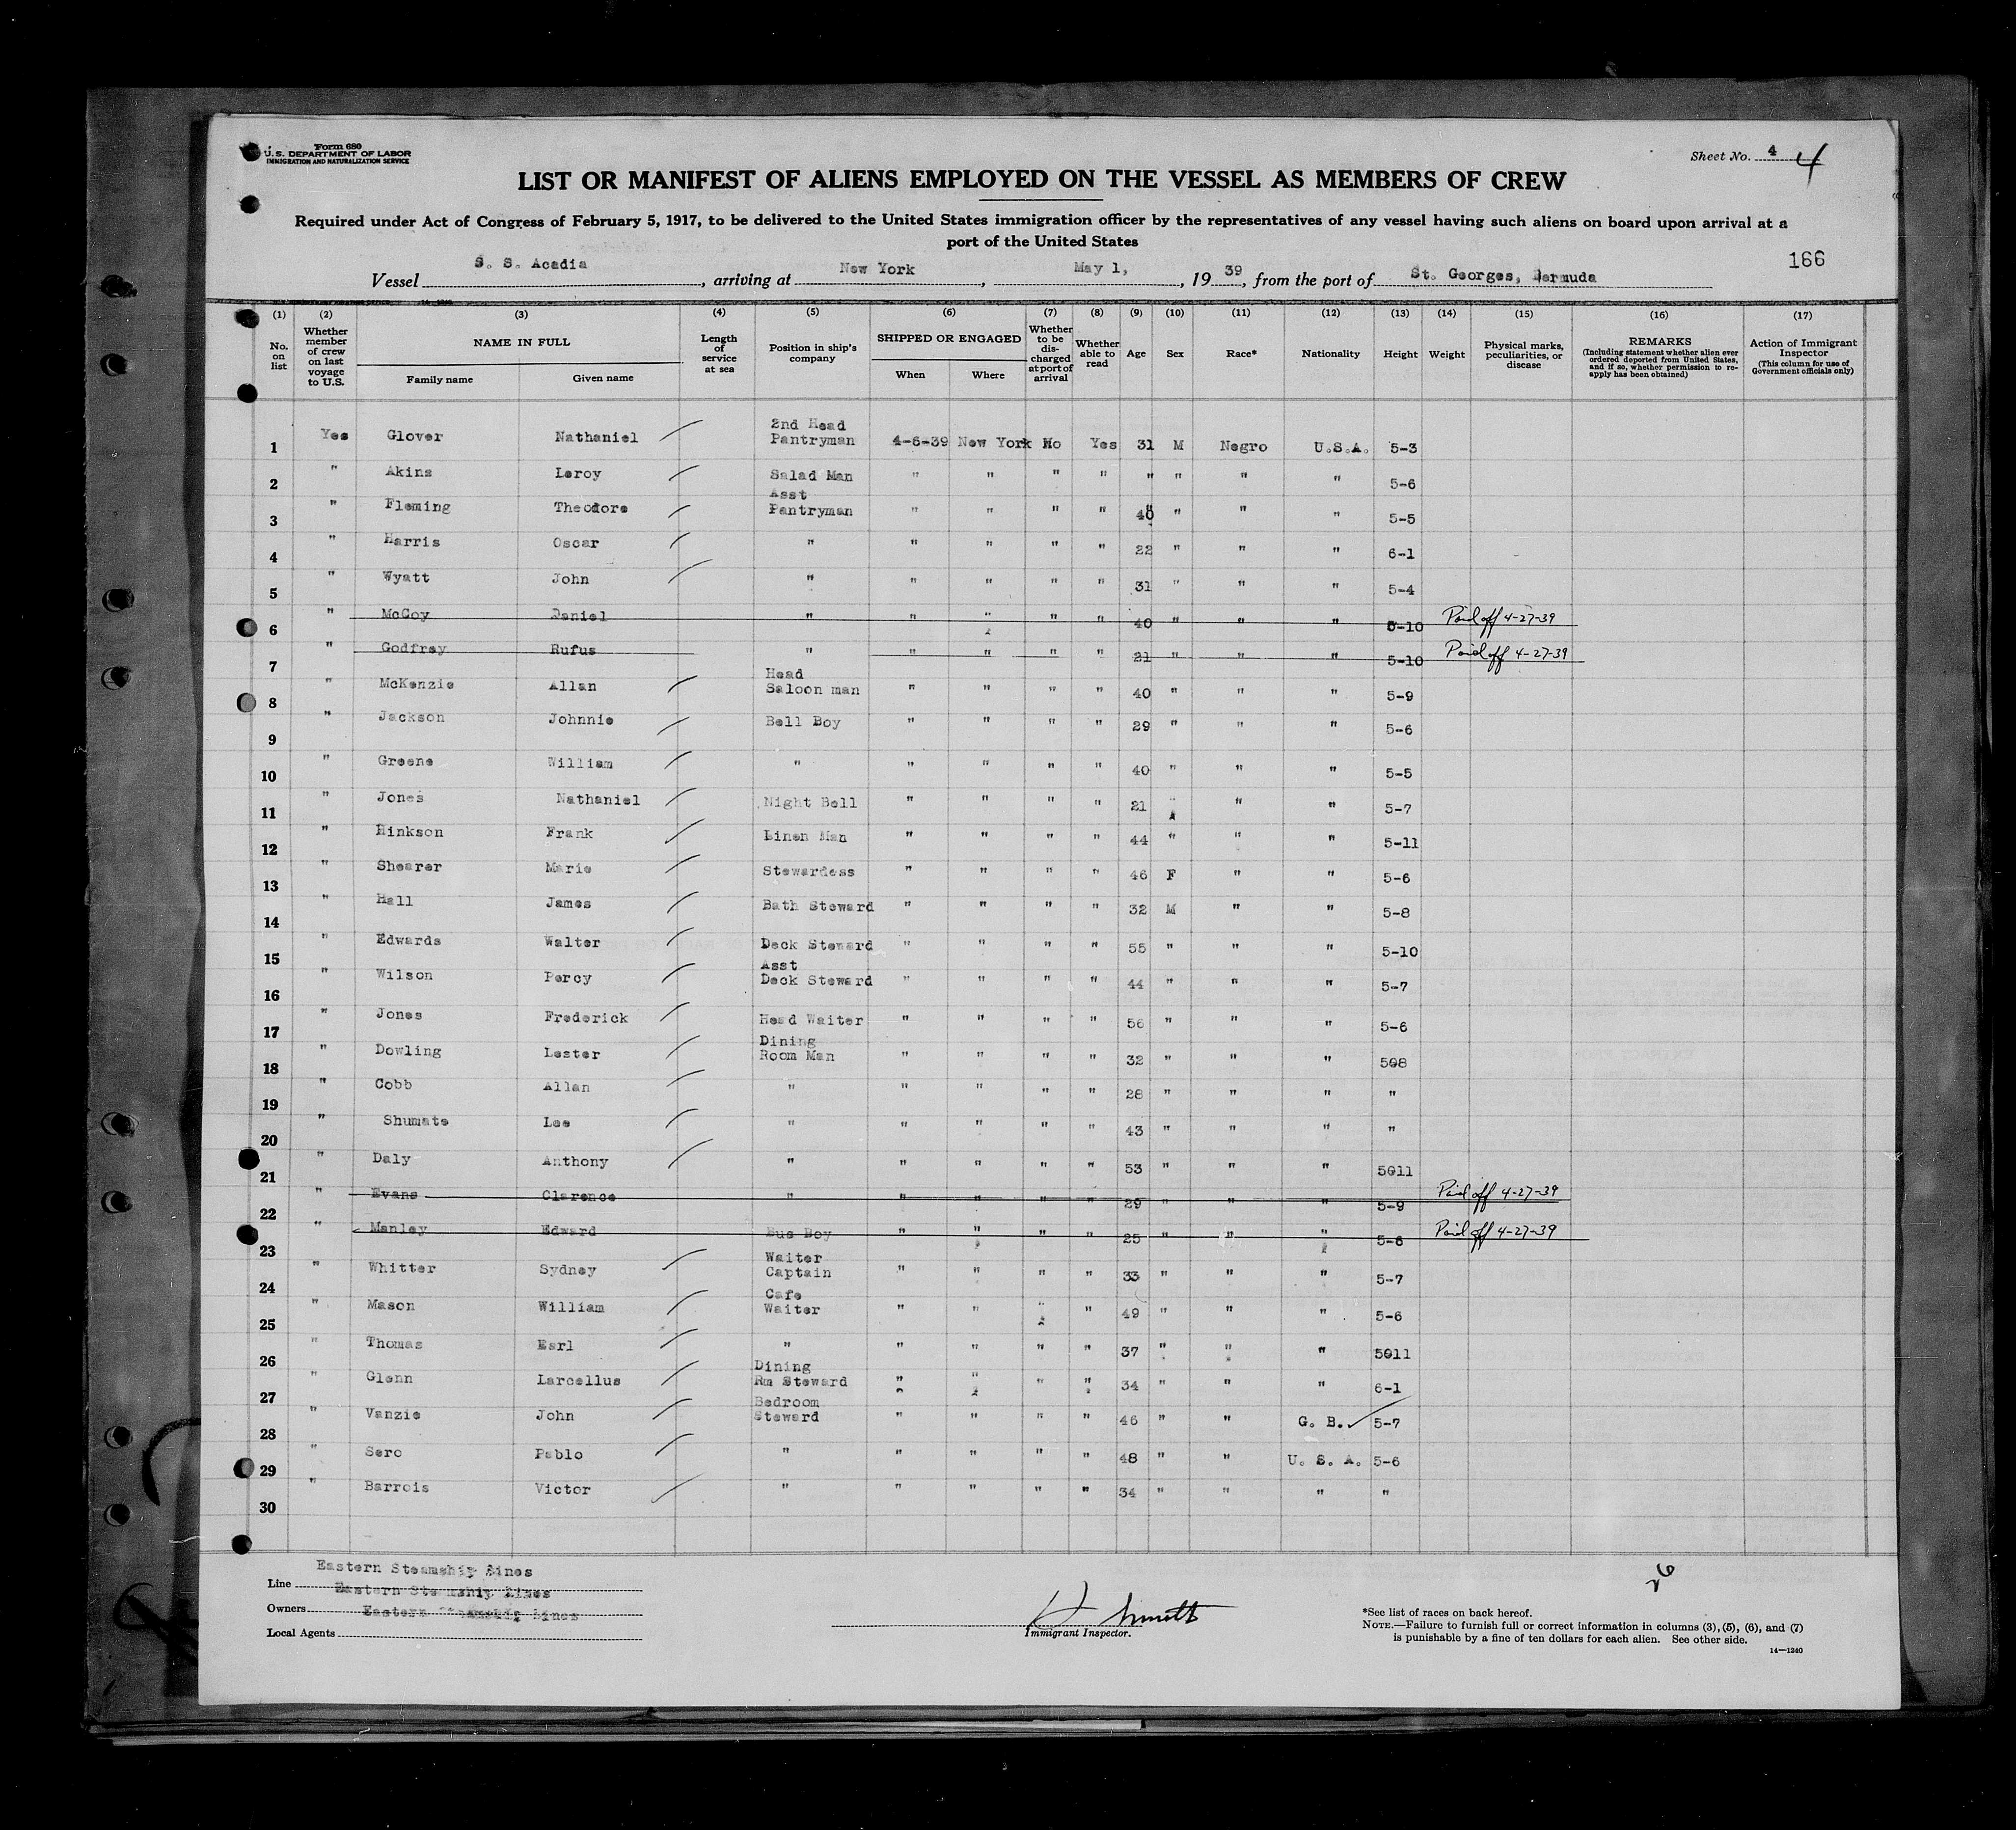 Form 680
U. S. DEPARTMENT OF LABOR
IMMIGRATION AND NATURALIZATION SERVICE
Sheet No. 4 4
LIST OR MANIFEST OF ALIENS EMPLOYED ON THE VESSEL AS MEMBERS OF CREW
Required under Act of Congress of February 5, 1917, to be delivered to the United States immigration officer by the representatives of any vessel having such aliens on board upon arrival at a
port of the United States
166
Vessel S. S. Acadia, arriving at New York, May 1, 1939, from the port of St. Georges, Bermuda
(1) (2) (3) (4) (5) (6) (7) (8) (9) (10) (11) (12) (13) (14) (15) (16) (17)
No. on list
Whether member of crew on last voyage to U.S.
NAME IN FULL
Family name Given name
Length of service at sea
Position in ship's company
SHIPPED OR ENGAGED
When Where
Whether to be discharged at port of arrival
Whether able to read
Age Sex Race* Nationality Height Weight
Physical marks, peculiarities, or disease
REMARKS
(Including statement whether alien ever ordered deported from United States, and if so, whether permission to re-apply has been obtained)
Action of Immigrant Inspector
(This column for use of Government officials only)
1 Yes Glover Nathaniel 2nd Head Pantryman 4-6-39 New York No Yes 31 M Negro U.S.A. 5-3
2 " Akins Leroy Salad Man " " " " " " " " 5-6
3 " Fleming Theodore Asst Pantryman " " " " 40 " " " 5-5
4 " Harris Oscar " " " " " 22 " " " 6-1
5 " Wyatt John " " " " " 31 " " " 5-4
6 " McCoy Daniel " " " " " 40 " " " 5-10 Paid off 4-27-39
7 " Godfrey Rufus " " " " " 21 " " " 5-10 Paid off 4-27-39
8 " McKenzie Allan Head Saloon man " " " " 40 " " " 5-9
9 " Jackson Johnnie Bell Boy " " " " 29 " " " 5-6
10 " Greene William " " " " " 40 " " " 5-5
11 " Jones Nathaniel Night Bell " " " " 21 " " " 5-7
12 " Hinkson Frank Linen Man " " " " 44 " " " 5-11
13 " Shearer Marie Stewardess " " " " 46 F " " 5-6
14 " Hall James Bath Steward " " " " 32 M " " 5-8
15 " Edwards Walter Deck Steward " " " " 55 " " " 5-10
16 " Wilson Percy Asst Deck Steward " " " " 44 " " " 5-7
17 " Jones Frederick Head Waiter " " " " 56 " " " 5-6
18 " Dowling Lester Dining Room Man " " " " 32 " " " 508
19 " Cobb Allan " " " " " 28 " " " "
20 " Shumate Lee " " " " " 43 " " " "
21 " Daly Anthony " " " " " 53 " " " 5011
22 " Evans Clarence " " " " " 29 " " " 5-9 Paid off 4-27-39
23 " Manley Edward Bus Boy " " " " 25 " " " 5-6 Paid off 4-27-39
24 " Whitter Sydney Waiter Captain " " " " 33 " " " 5-7
25 " Mason William Cafe Waiter " " " " 49 " " " 5-6
26 " Thomas Earl " " " " " 37 " " " 5011
27 " Glenn Larcellus Dining Rm Steward " " " " 34 " " " 6-1
28 " Vanzie John Bedroom Steward " " " " 46 " " G. B. 5-7
29 " Sero Pablo " " " " " 48 " " U. S. A. 5-6
30 " Barrois Victor " " " " " 34 " " " "
Line Eastern Steamship Lines
Owners Eastern Steamship Lines
Local Agents Eastern Steamship Lines
26
Immigrant Inspector.
*See list of races on back hereof.
NOTE.—Failure to furnish full or correct information in columns (3), (5), (6), and (7)
is punishable by a fine of ten dollars for each alien. See other side.
14—1240